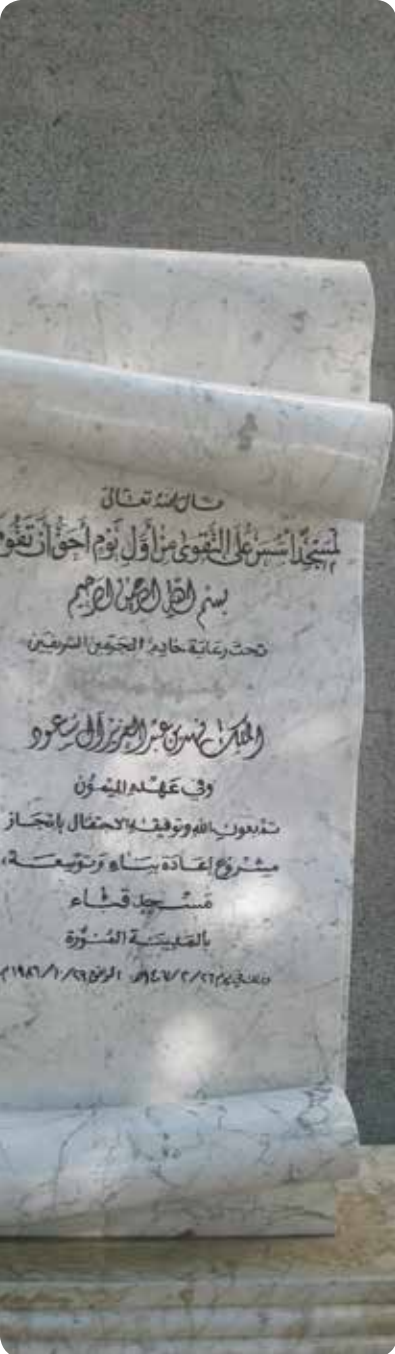 قال الله تعالى
لَمَسْجِدٌ أُسِّسَ عَلَى التَّقْوَى مِنْ أَوَّلِ يَوْمٍ أَحَقُّ أَنْ تَقُو
بسم الله الرحمن الرحيم
تحت رعاية خادم الحرمين الشريفين
الملك فهد بن عبد العزيز آل سعود
وفي عهده الميمون
تم بعون الله وتوفيقه الاحتفال بإنجاز
مشروع إعادة بناء وتوسعة
مسجد قباء
بالمدينة المنورة
الموفق